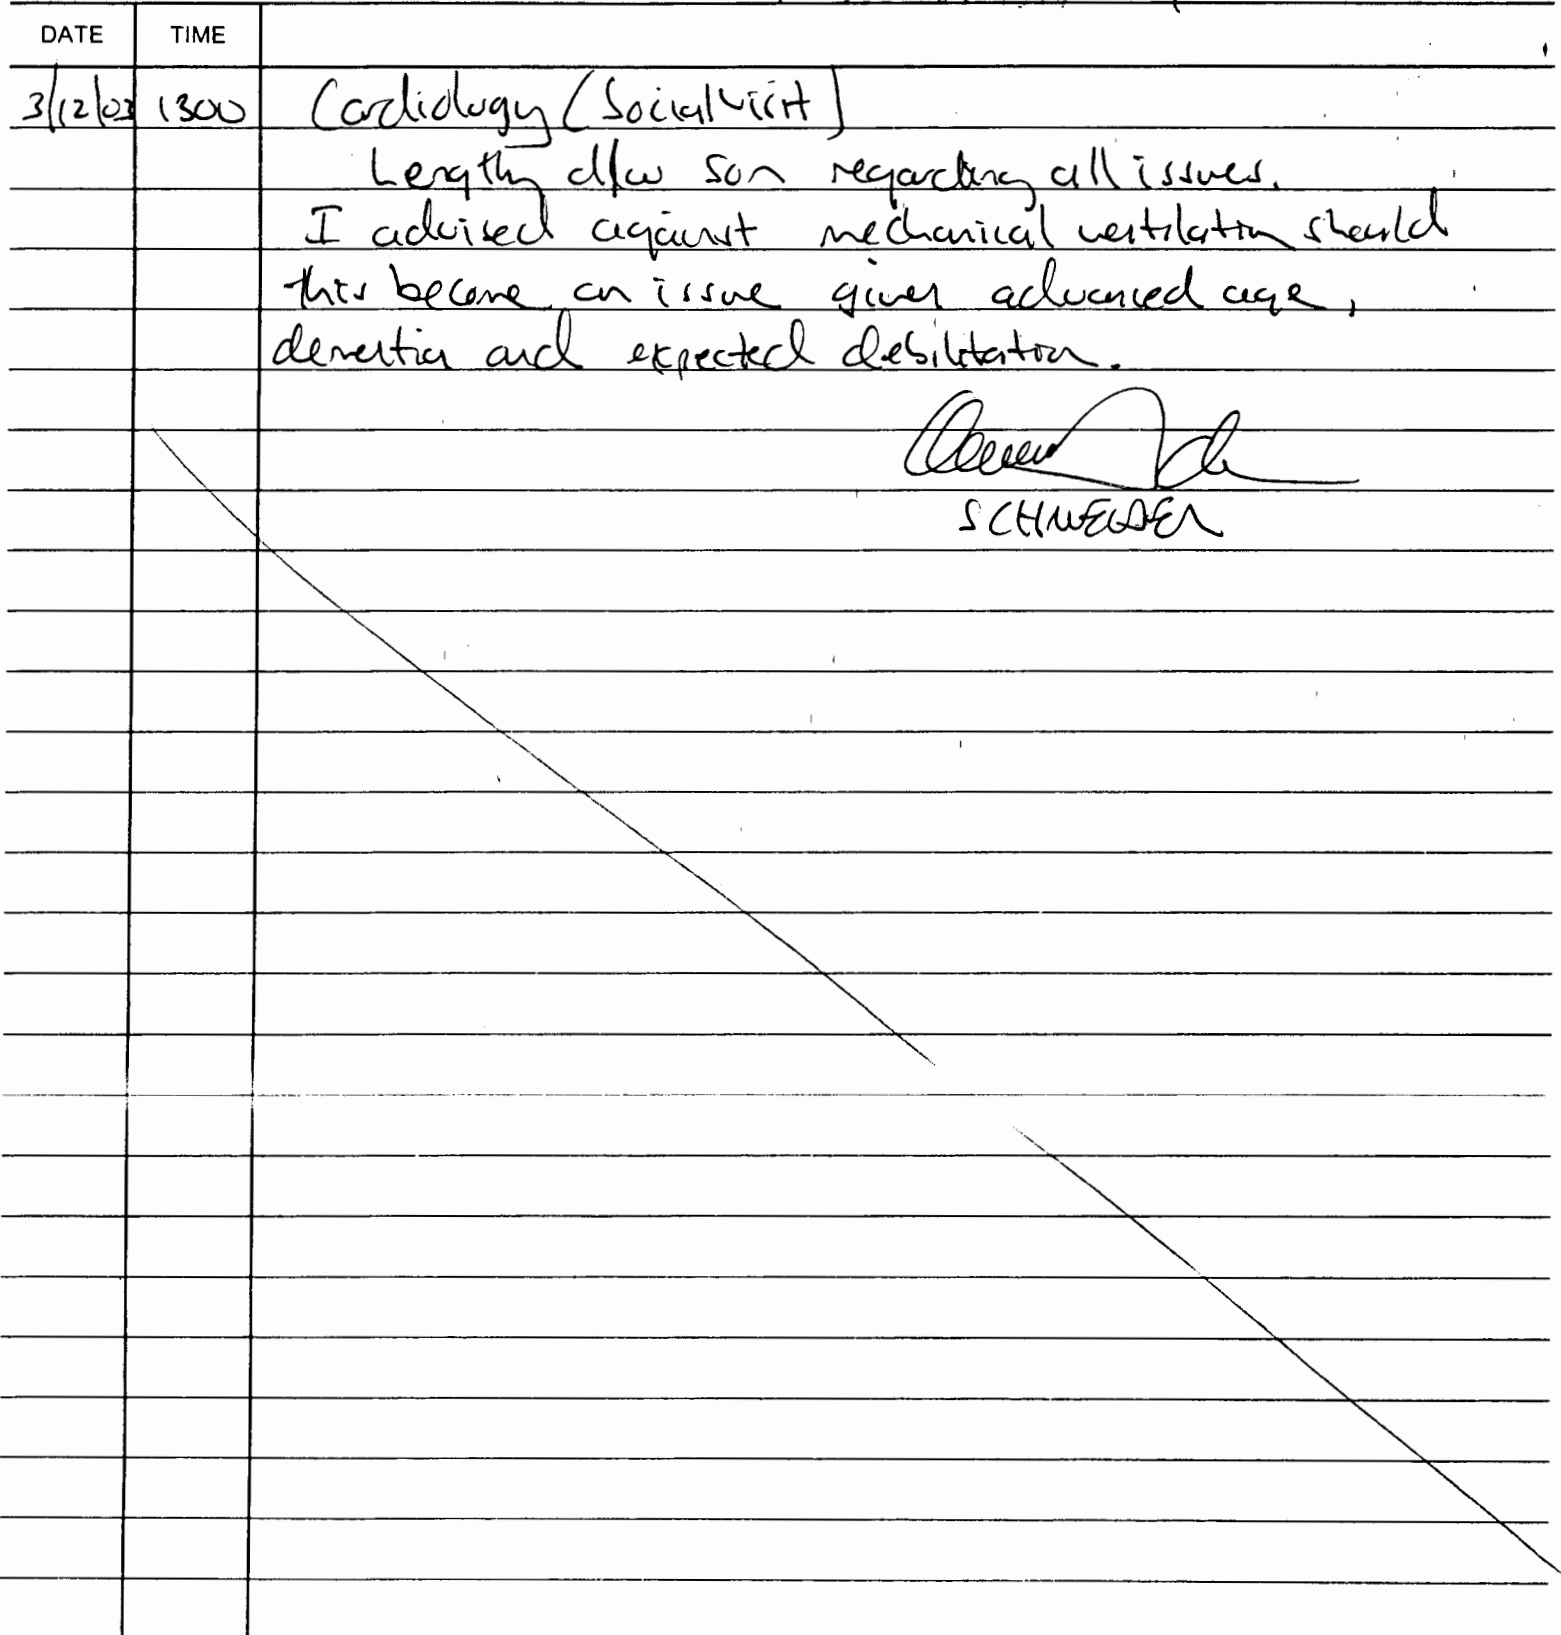 DATE TIME
3/12/03 1300 Cardiology (Social Visit)
Lengthy d/w son regarding all issues.
I advised against mechanical ventilation should
this become an issue given advanced age,
dementia and expected debilitation.
SCHNEIDER